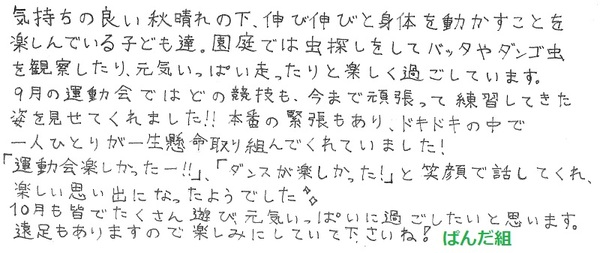 気持ちの良い秋晴れの下、伸び伸びと身体を動かすことを
楽しんでいる子ども達。園庭では虫探しをしてバッタやダンゴ虫
を観察したり、元気いっぱい走ったりと楽しく過ごしています。
9月の運動会ではどの競技も、今まで頑張って練習してきた
姿を見せてくれました!!本番の緊張もあり、ドキドキの中で
一人ひとりが一生懸命取り組んでくれていました!
「運動会楽しかったー!!」、「ダンスが楽しかった!」と笑顔で話してくれ、
楽しい思い出になったようでした
10月も皆でたくさん遊び元気いっぱいに過ごしたいと思います。
遠足もありますので楽しみにしていて下さいね! ぱんだ組